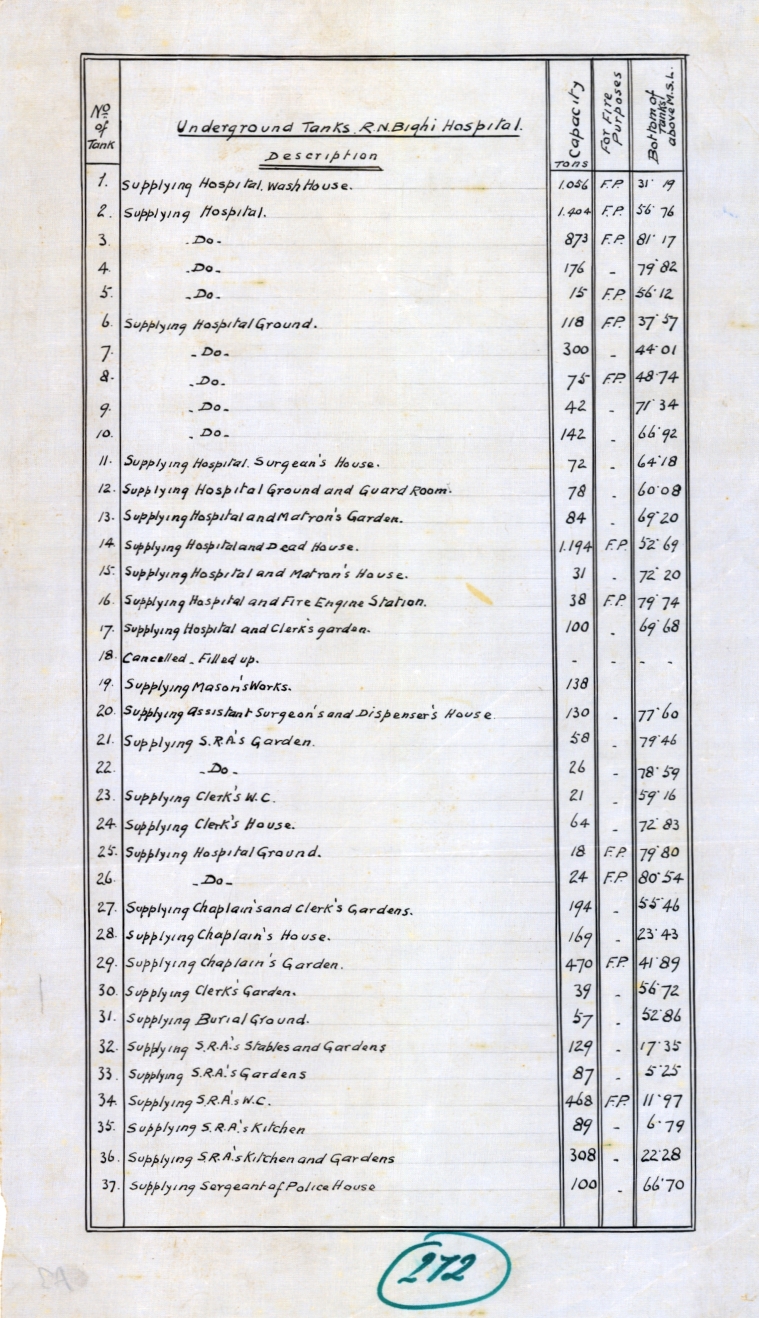 No of Tank
Underground Tanks, R.N. Bighi Hospital.
Description
Capacity Tons
For Fire Purposes
Bottom of Tanks above M.S.L.
1. Supplying Hospital. Wash House. 1.056 F.P. 31·19
2. Supplying Hospital. 1.404 F.P. 56·76
3. -Do- 873 F.P. 81·17
4. -Do- 176 - 79·82
5. -Do- 15 F.P. 56·12
6. Supplying Hospital Ground. 118 F.P. 37·57
7. -Do- 300 - 44·01
8. -Do- 75 F.P. 48·74
9. -Do- 42 - 71·34
10. -Do- 142 - 66·92
11. Supplying Hospital. Surgean's House. 72 - 64·18
12. Supplying Hospital Ground and Guard Room. 78 - 60·08
13. Supplying Hospital and Matron's Garden. 84 - 69·20
14. Supplying Hospital and Dead House. 1.194 F.P. 52·69
15. Supplying Hospital and Matron's House. 31 - 72·20
16. Supplying Hospital and Fire Engine Station. 38 F.P. 79·74
17. Supplying Hospital and Clerk's garden. 100 - 69·68
18. Cancelled - Filled up. - - -
19. Supplying Mason's Works. 138
20. Supplying Assistant Surgeon's and Dispenser's House 130 - 77·60
21. Supplying S.R.A's Garden. 58 - 79·46
22. -Do- 26 - 78·59
23. Supplying Clerk's W.C. 21 - 59·16
24. Supplying Clerk's House. 64 - 72·83
25. Supplying Hospital Ground. 18 F.P. 79·80
26. -Do- 24 F.P. 80·54
27. Supplying Chaplain's and Clerk's Gardens. 194 - 55·46
28. Supplying Chaplain's House. 169 - 23·43
29. Supplying Chaplain's Garden. 470 F.P. 41·89
30. Supplying Clerk's Garden. 39 - 56·72
31. Supplying Burial Ground. 57 - 52·86
32. Supplying S.R.A.'s Stables and Gardens 129 - 17·35
33. Supplying S.R.A.'s Gardens 87 - 5·25
34. Supplying S.R.A.'s W.C. 468 F.P. 11·97
35. Supplying S.R.A.'s Kitchen 89 - 6·79
36. Supplying S.R.A's Kitchen and Gardens 308 - 22·28
37. Supplying Sergeant of Police House 100 - 66·70
272